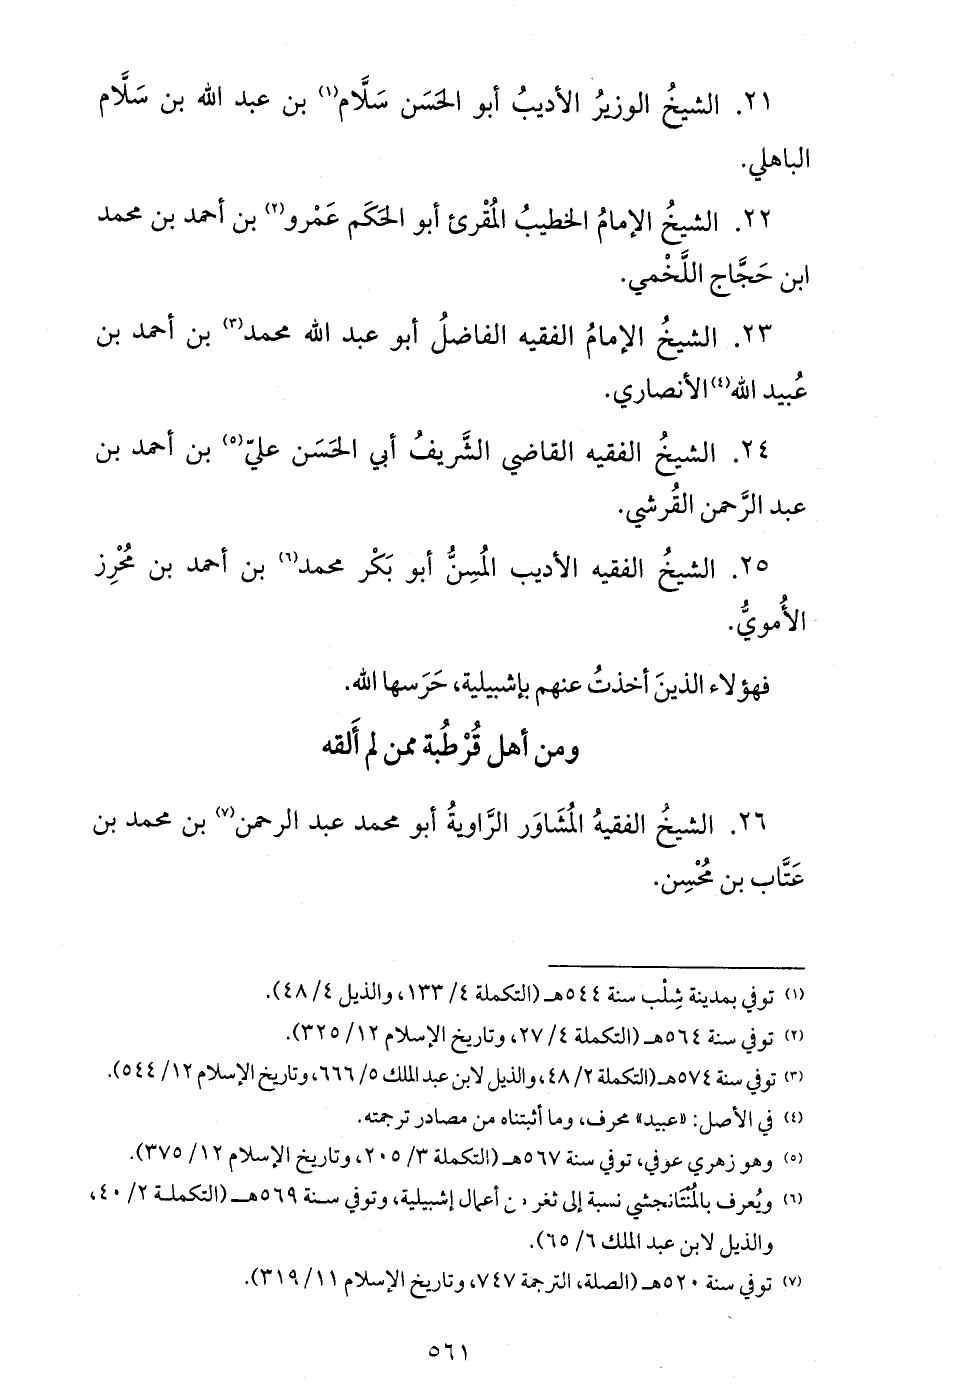 ٢١. الشيخُ الوزيرُ الأديبُ أبو الحَسَن سَلَّام(١) بن عبد الله بن سَلَّام
الباهلي.
٢٢. الشيخُ الإمامُ الخطيبُ المُقْرئ أبو الحَكَم عَمْرو(٢) بن أحمد بن محمد
ابن حَجَّاج اللَّخْمي.
٢٣. الشيخُ الإمامُ الفقيه الفاضلُ أبو عبد الله محمد(٣) بن أحمد بن
عُبيد الله(٤) الأنصاري.
٢٤. الشيخُ الفقيه القاضي الشَّريفُ أبي الحَسَن عليّ(٥) بن أحمد بن
عبد الرَّحمن القُرشي.
٢٥. الشيخُ الفقيه الأديب المُسِنُّ أبو بَكْر محمد(٦) بن أحمد بن مُحْرِز
الأُمويُّ.
فهؤلاء الذينَ أخذتُ عنهم بإشبيلية، حَرَسها الله.
ومن أهل قُرْطُبة ممن لم أَلقه
٢٦. الشيخُ الفقيهُ المُشَاوَر الرَّاويةُ أبو محمد عبد الرحمن(٧) بن محمد بن
عَتَّاب بن مُحْسِن.
(١) توفي بمدينة شِلْب سنة ٥٤٤هـ (التكملة ٤/ ١٣٣، والذيل ٤/ ٤٨).
(٢) توفي سنة ٥٦٤هـ (التكملة ٤/ ٢٧، وتاريخ الإسلام ١٢/ ٣٢٥).
(٣) توفي سنة ٥٧٤هـ (التكملة ٢/ ٤٨، والذيل لابن عبد الملك ٥/ ٦٦٦، وتاريخ الإسلام ١٢/ ٥٤٤).
(٤) في الأصل: «عبيد» محرف، وما أثبتناه من مصادر ترجمته.
(٥) وهو زهري عوفي، توفي سنة ٥٦٧هـ (التكملة ٣/ ٢٠٥، وتاريخ الإسلام ١٢/ ٣٧٥).
(٦) ويُعرف بالمُنْتَانجشي نسبة إلى ثغر من أعمال إشبيلية، وتوفي سنة ٥٦٩هـ (التكملة ٢/ ٤٠،
والذيل لابن عبد الملك ٦/ ٦٥).
(٧) توفي سنة ٥٢٠هـ (الصلة، الترجمة ٧٤٧، وتاريخ الإسلام ١١/ ٣١٩).
٥٦١